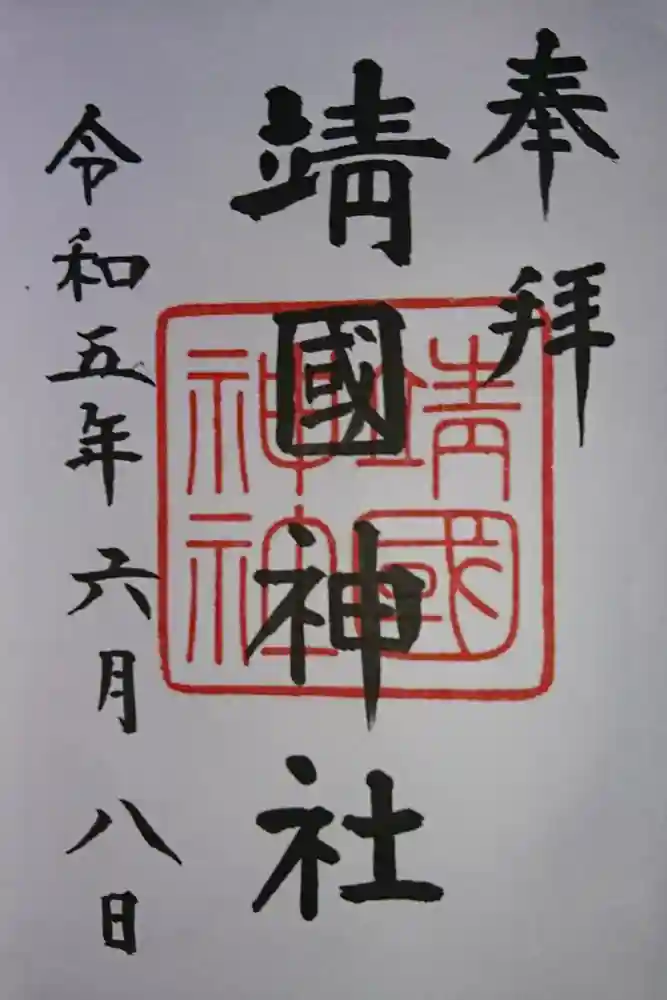 奉拝
靖國神社
令和五年六月八日
靖國
神社